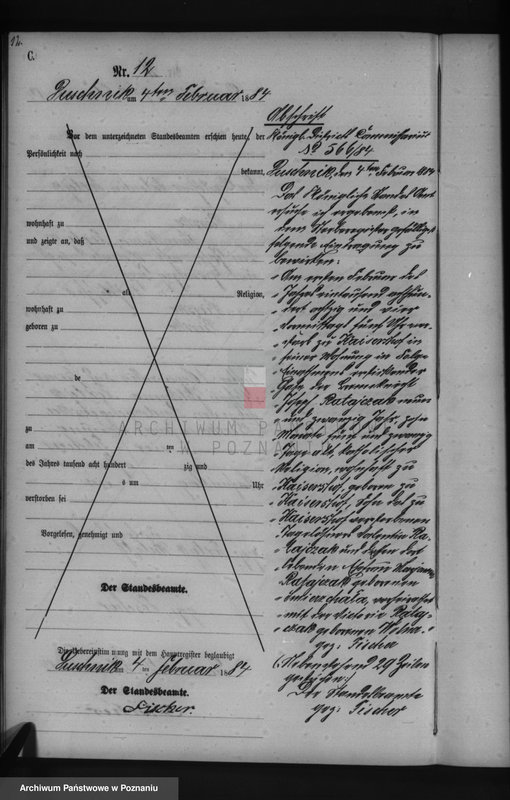 12.
C.
Nr. 12
Duschnik am 4ten Februar 1884
Vor dem unterzeichneten Standesbeamten erschien heute, der
Persönlichkeit nach
bekannt,
wohnhaft zu
und zeigte an, daß
alt
Religion,
wohnhaft zu
geboren zu
de
zu
am ten
des Jahres tausend acht hundert zig und
s um Uhr
verstorben sei
Vorgelesen, genehmigt und
Der Standesbeamte.
Die Übereinstimmung mit dem Hauptregister beglaubigt
Duschnik am 4 ten Februar 1884
Der Standesbeamte.
Fischer.
Abschrift
Königl. Districts Commissarius
No 566/84
den 4ten Februar 1884
Das Königliche Standes Amt
ersuche ich ergebenst, in
dem Sterberegister gefälligst
folgende Eintragung zu
bewirken:
Am ersten Februar des
Jahres eintausend achthun-
dert achtzig und vier
Vormittags fünf Uhr
zu Kaiserhof in
seiner Wohnung in Folge
Joseph Ratajczak neun
und zwanzig Jahr, zehn
Monate fünf und zwanzig
Tage alt, katholischer
Religion, wohnhaft zu
Kaiserhof, geboren zu
Kaiserhof, Sohn des zu
Kaiserhof verstorbenen
Tagelöhners Valentin Ra-
tajczak und dessen dort
lebenden Ehefrau
Ratajczak geborenen
verheirathet
mit der Victoria Rataj-
czak geborenen
gez. Fischer
(Nebenstehend 29 Zeilen
gestrichen.)
Der Standesbeamte
gez. Fischer
ARCHIWUM PAŃSTWOWE
W POZNANIU
Archiwum Państwowe w Poznaniu